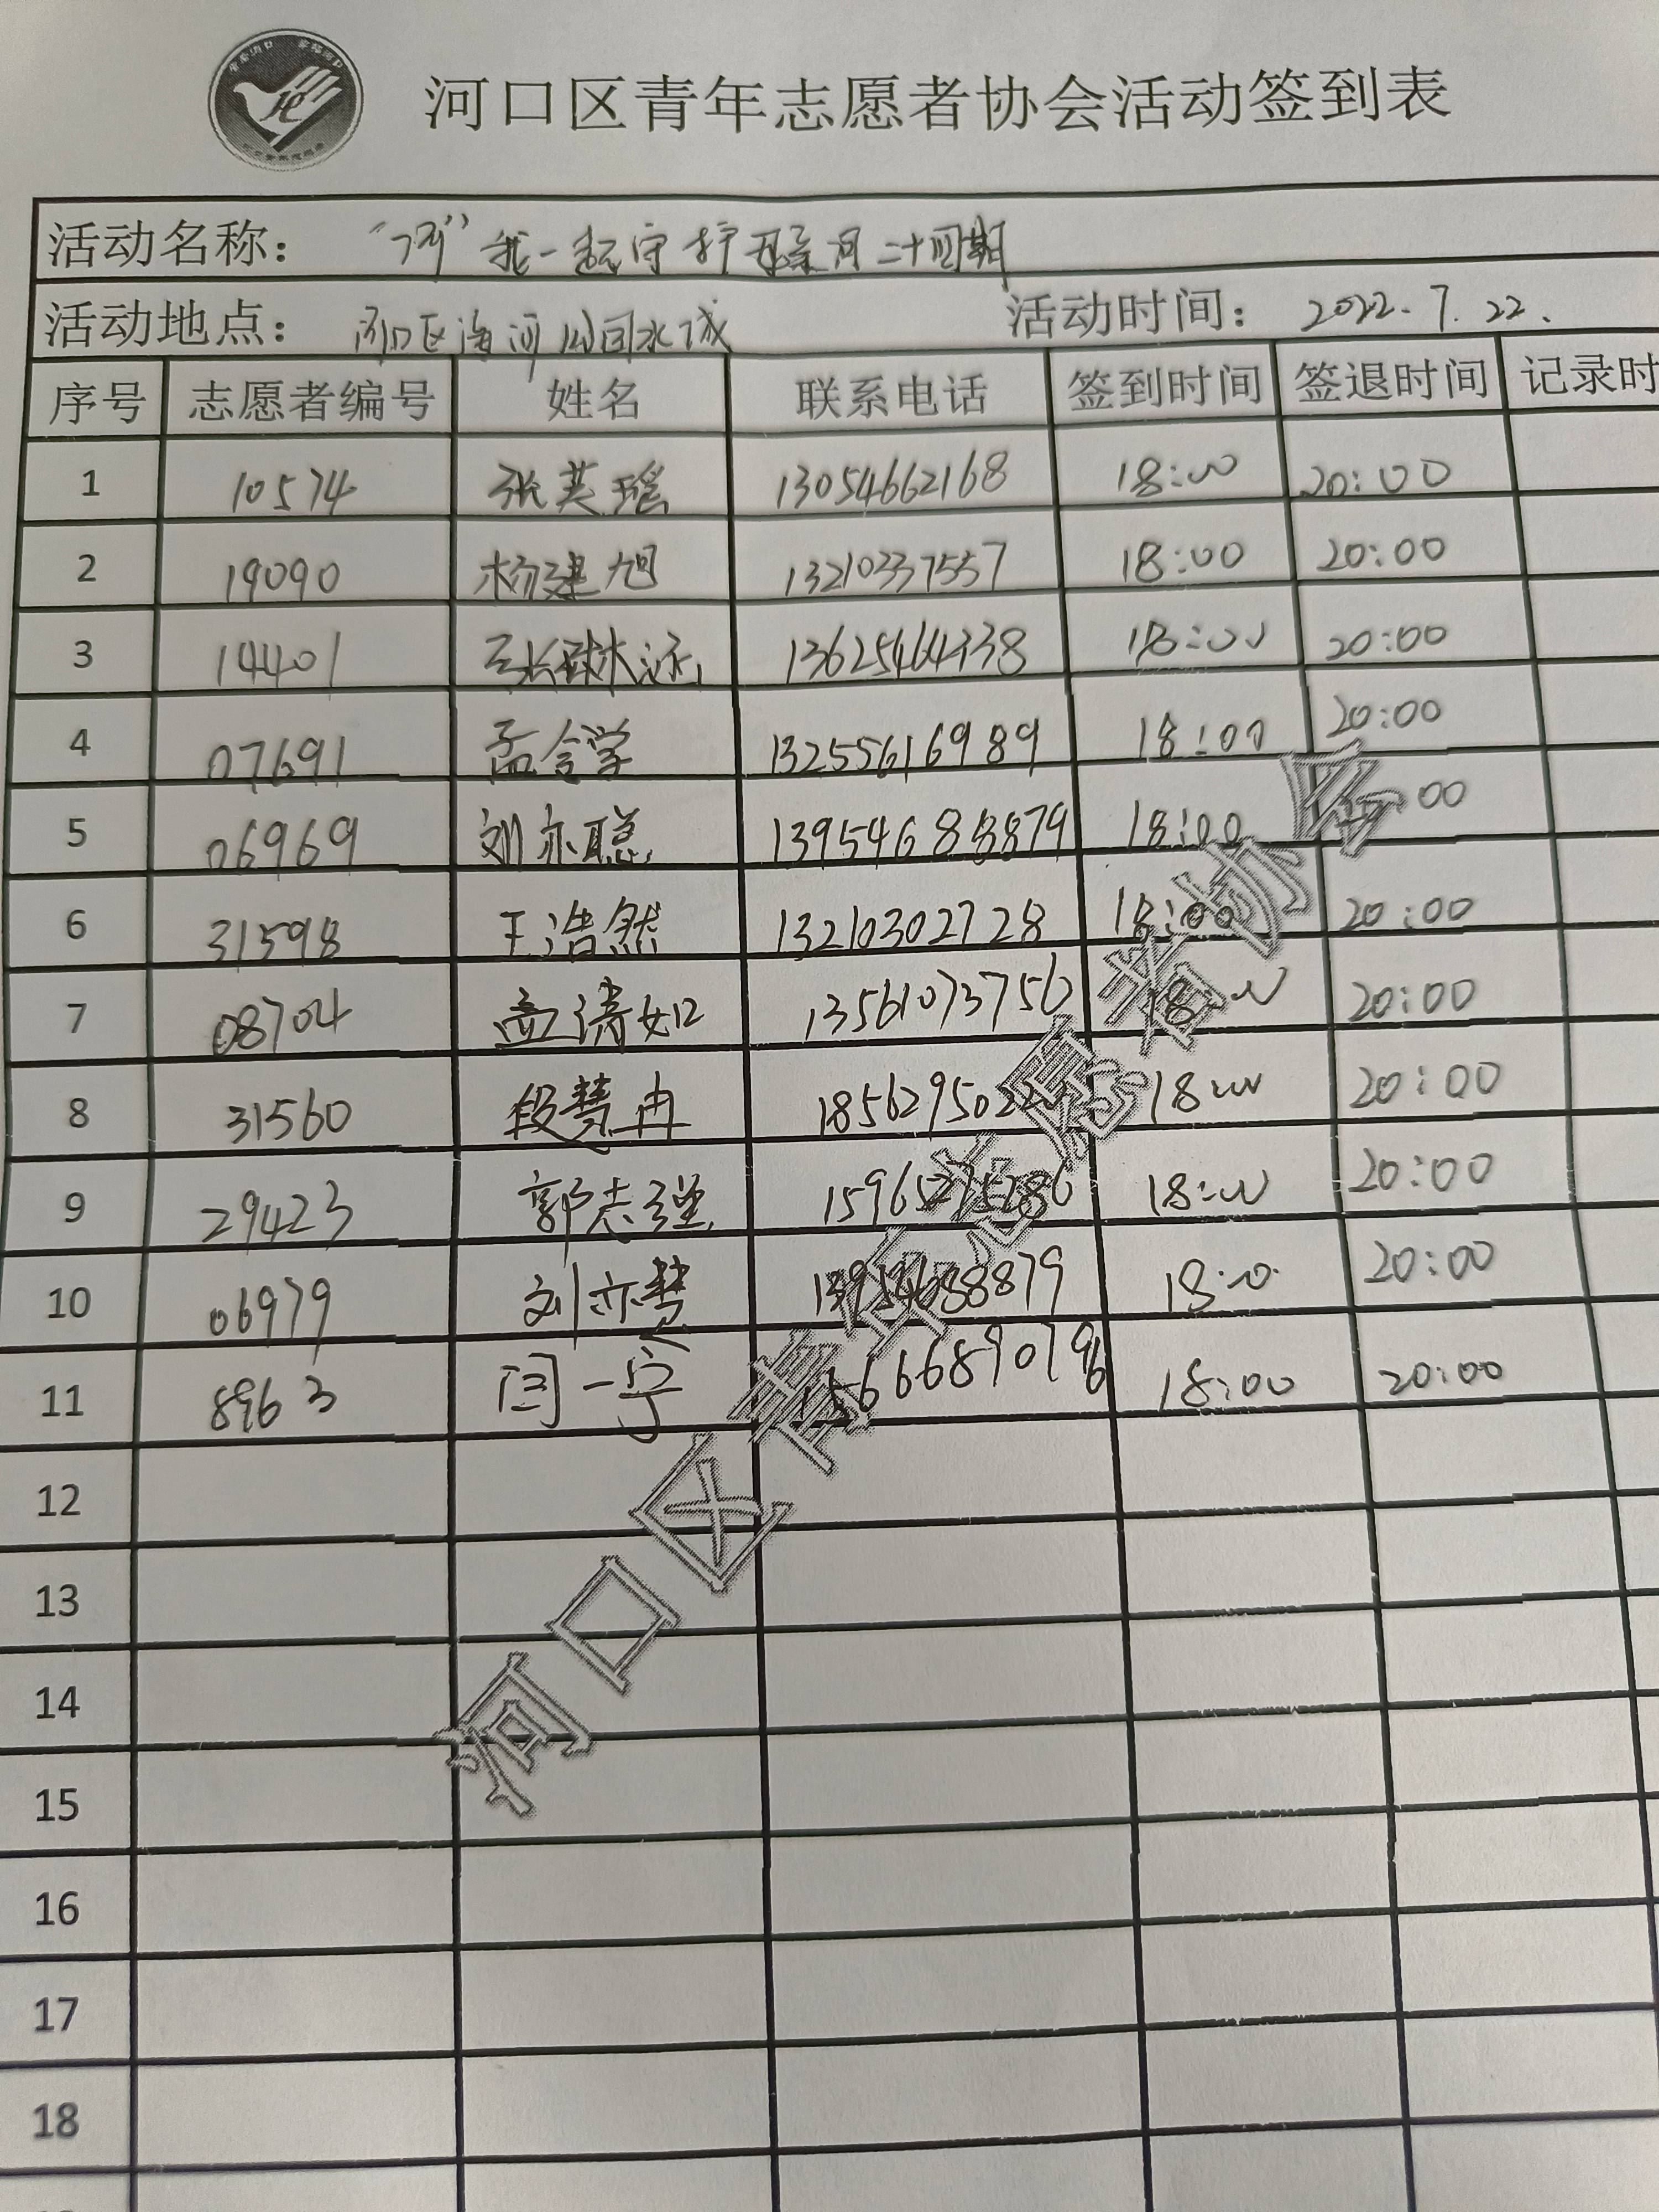 河口区青年志愿者协会活动签到表
活动名称： “河”我一起守护母亲河二十四期
活动地点： 河口区海河公园水城 活动时间： 2022.7.22.
序号 志愿者编号 姓名 联系电话 签到时间 签退时间 记录时
1 10574 张英瑶 13054662168 18:00 20:00
2 19090 杨建旭 13210337557 18:00 20:00
3 14401 18:00 20:00
4 07691 孟令学 13255616989 18:00 20:00
5 06969 刘亦聪 18:00 00
6 31598 王浩然 13210302728 18:00 20:00
7 08704 孟清如 13561073756 18:00 20:00
8 31560 段慧冉 18:00 20:00
9 29423 郭志强 18:00 20:00
10 06979 刘亦梦 18:00 20:00
11 8963 闫一宁 18:00 20:00
12
13
14
15
16
17
18
河口区青年志愿者协会